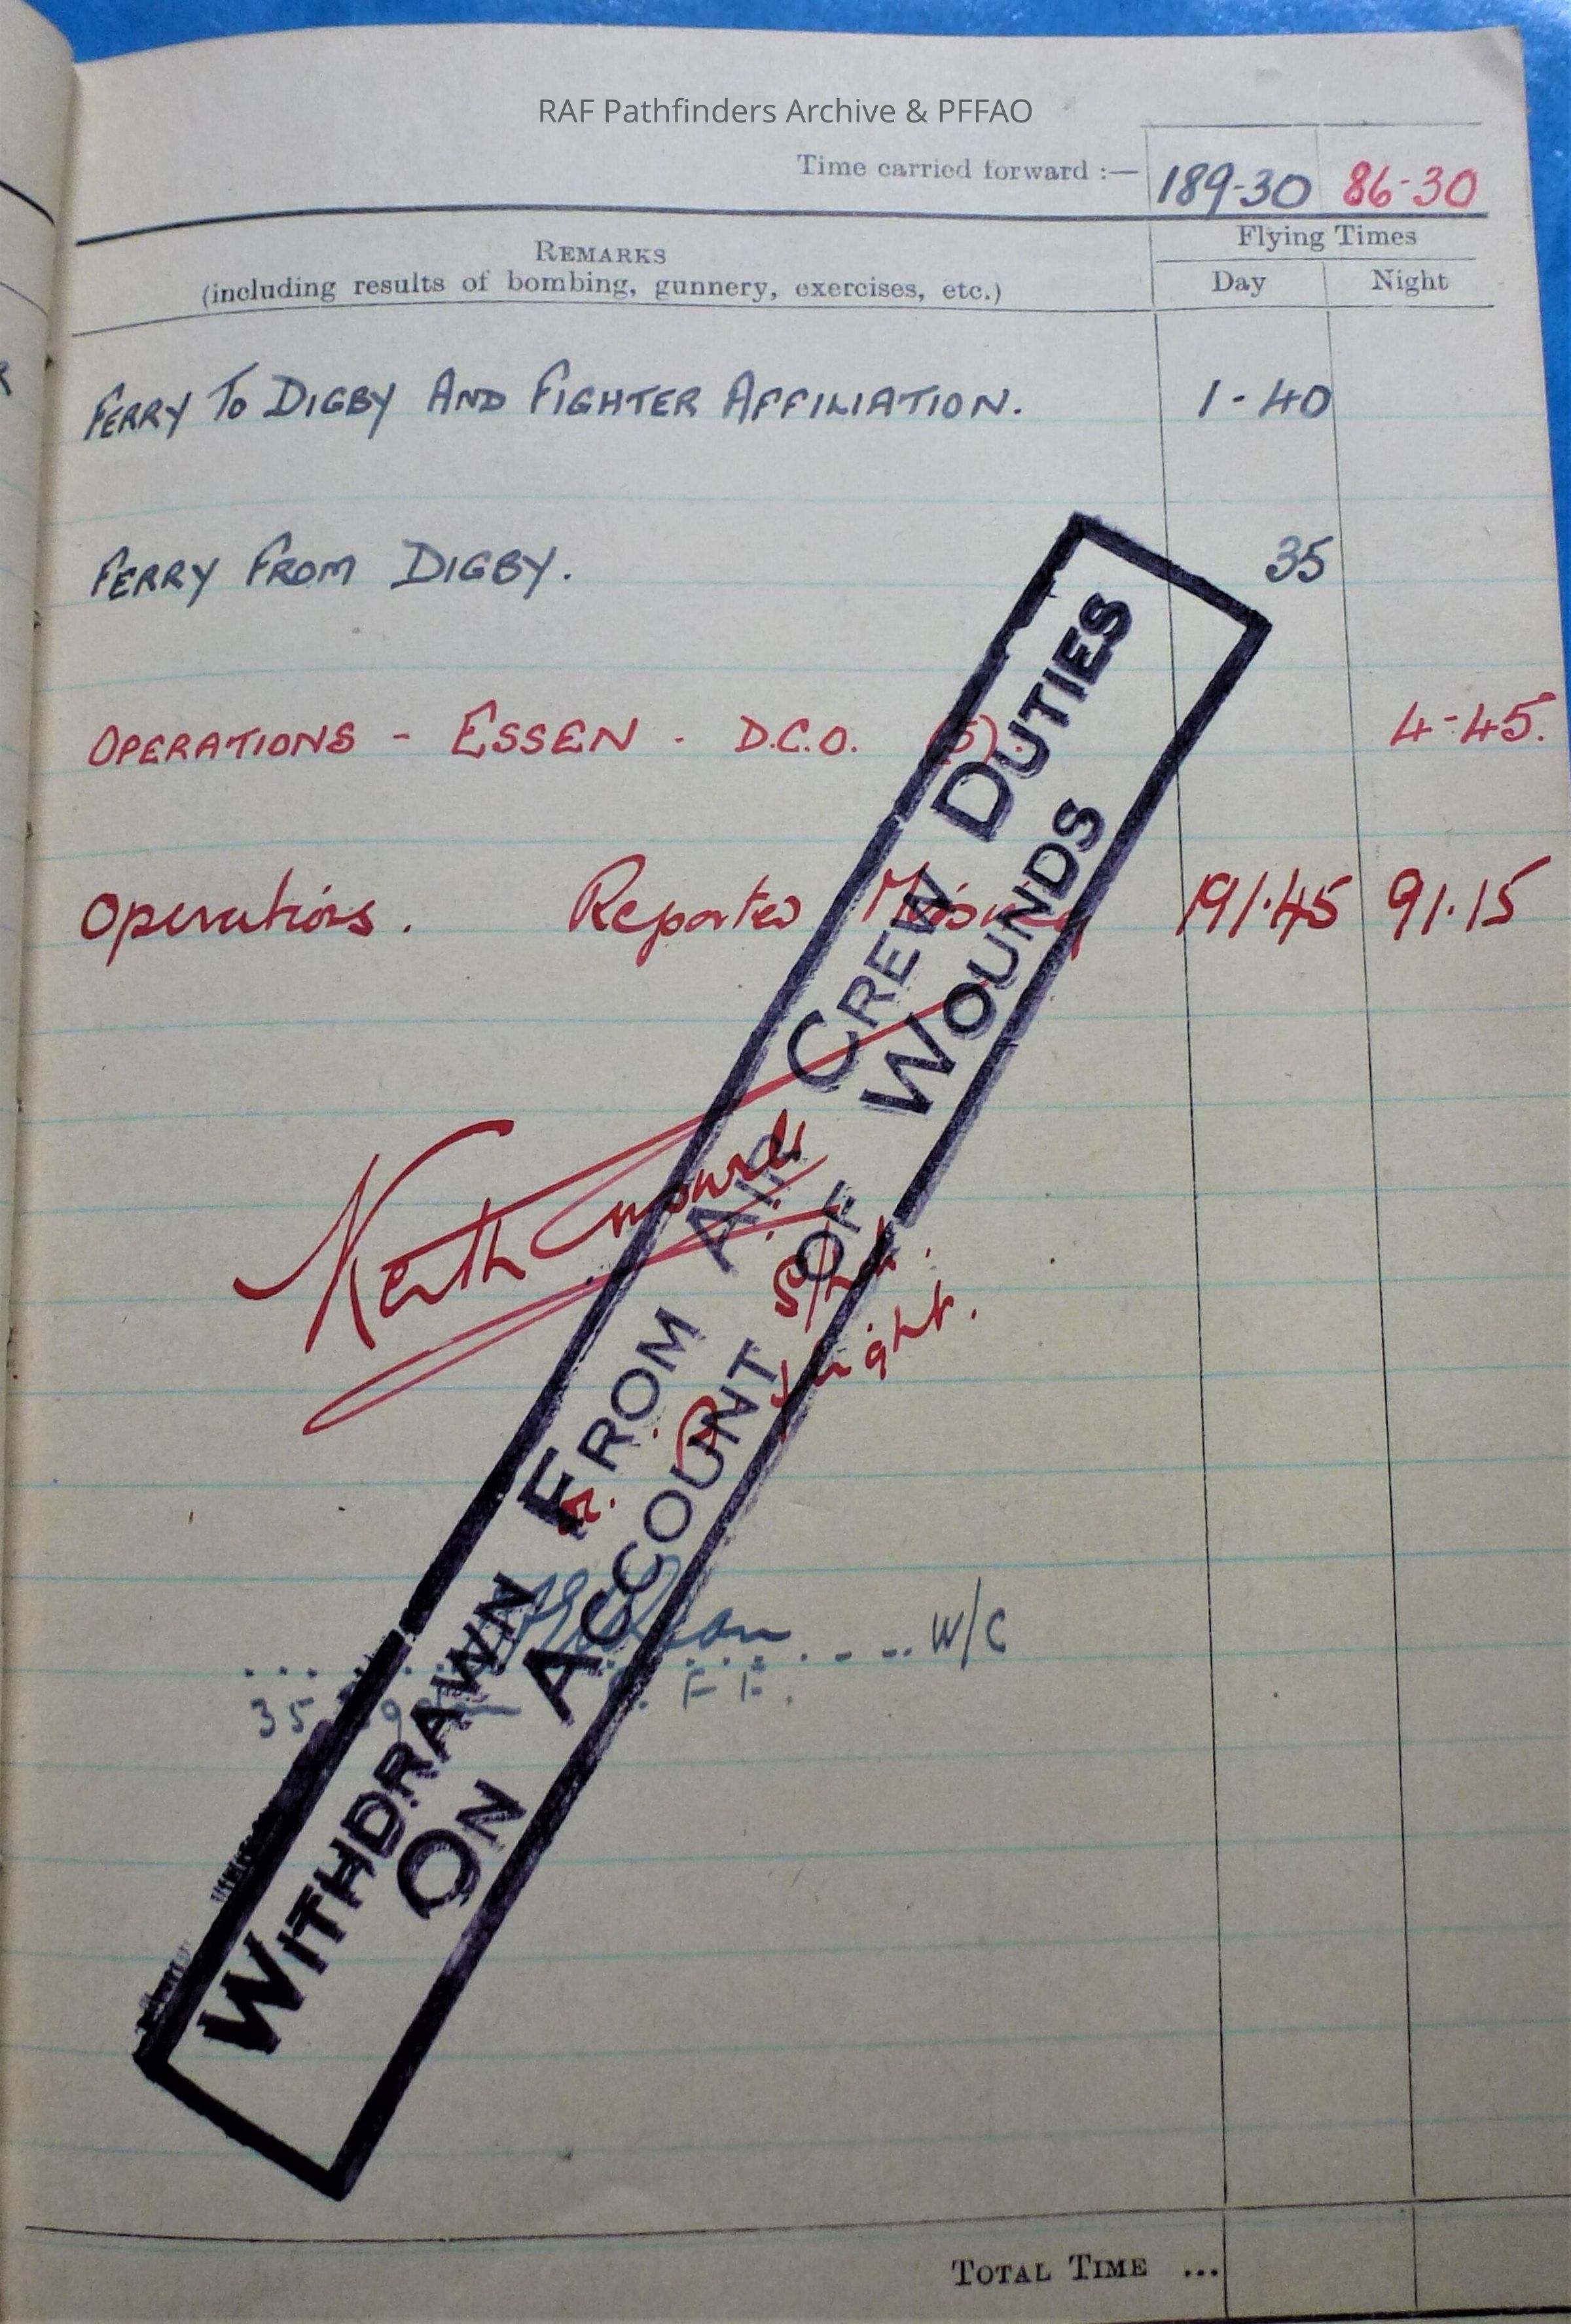 RAF Pathfinders Archive & PFFAO
Time carried forward :— 189-30 86-30
REMARKS
(including results of bombing, gunnery, exercises, etc.)
Flying Times
Day Night
FERRY TO DIGBY AND FIGHTER AFFILIATION. 1-40
FERRY FROM DIGBY. 35
OPERATIONS - ESSEN - D.C.O. (5). 4-45.
Operations. Reported Missing 191.45 91.15
Keith
S/Ldr.
Flight.
W/C
35
WITHDRAWN FROM AIR CREW DUTIES
ON ACCOUNT OF WOUNDS
TOTAL TIME ...